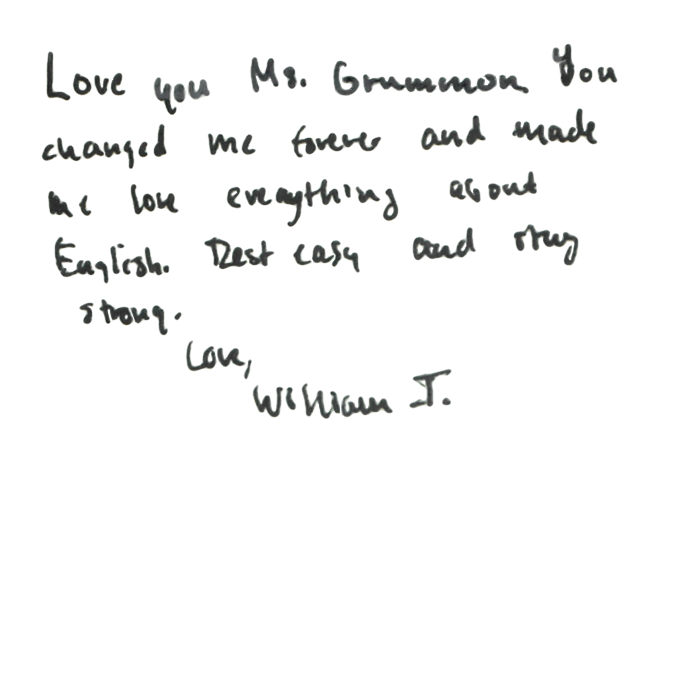 Love you Ms. Grummon You
changed me forever and made
me love everything about
English. Rest easy and stay
strong.
Love,
William J.